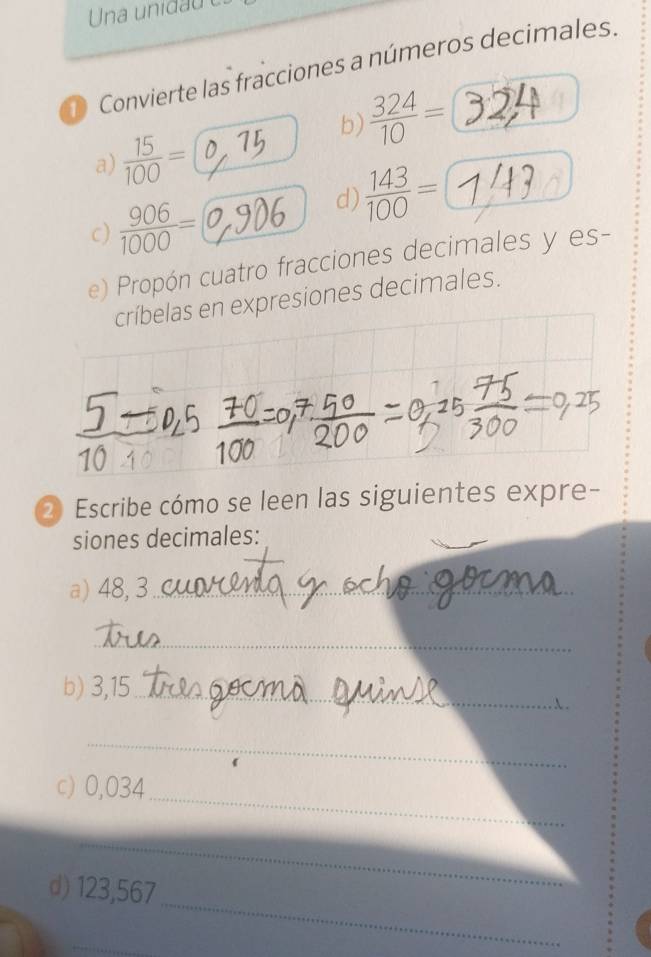 Una unidad
1 Convierte las fracciones a números decimales.
a) 15/100 = 0,15
b) 324/10 = 32,4
c) 906/1000 = 0,906
d) 143/100 = 1,43
e) Propón cuatro fracciones decimales y es-
críbelas en expresiones decimales.
5/10 = 0,5 70/100 = 0,7 50/200 = 0,25 75/300 = 0,25
2 Escribe cómo se leen las siguientes expre-
siones decimales:
a) 48, 3 cuarenta y ocho gocma
tres
b) 3,15 tres gocma quinse
c) 0,034
d) 123,567